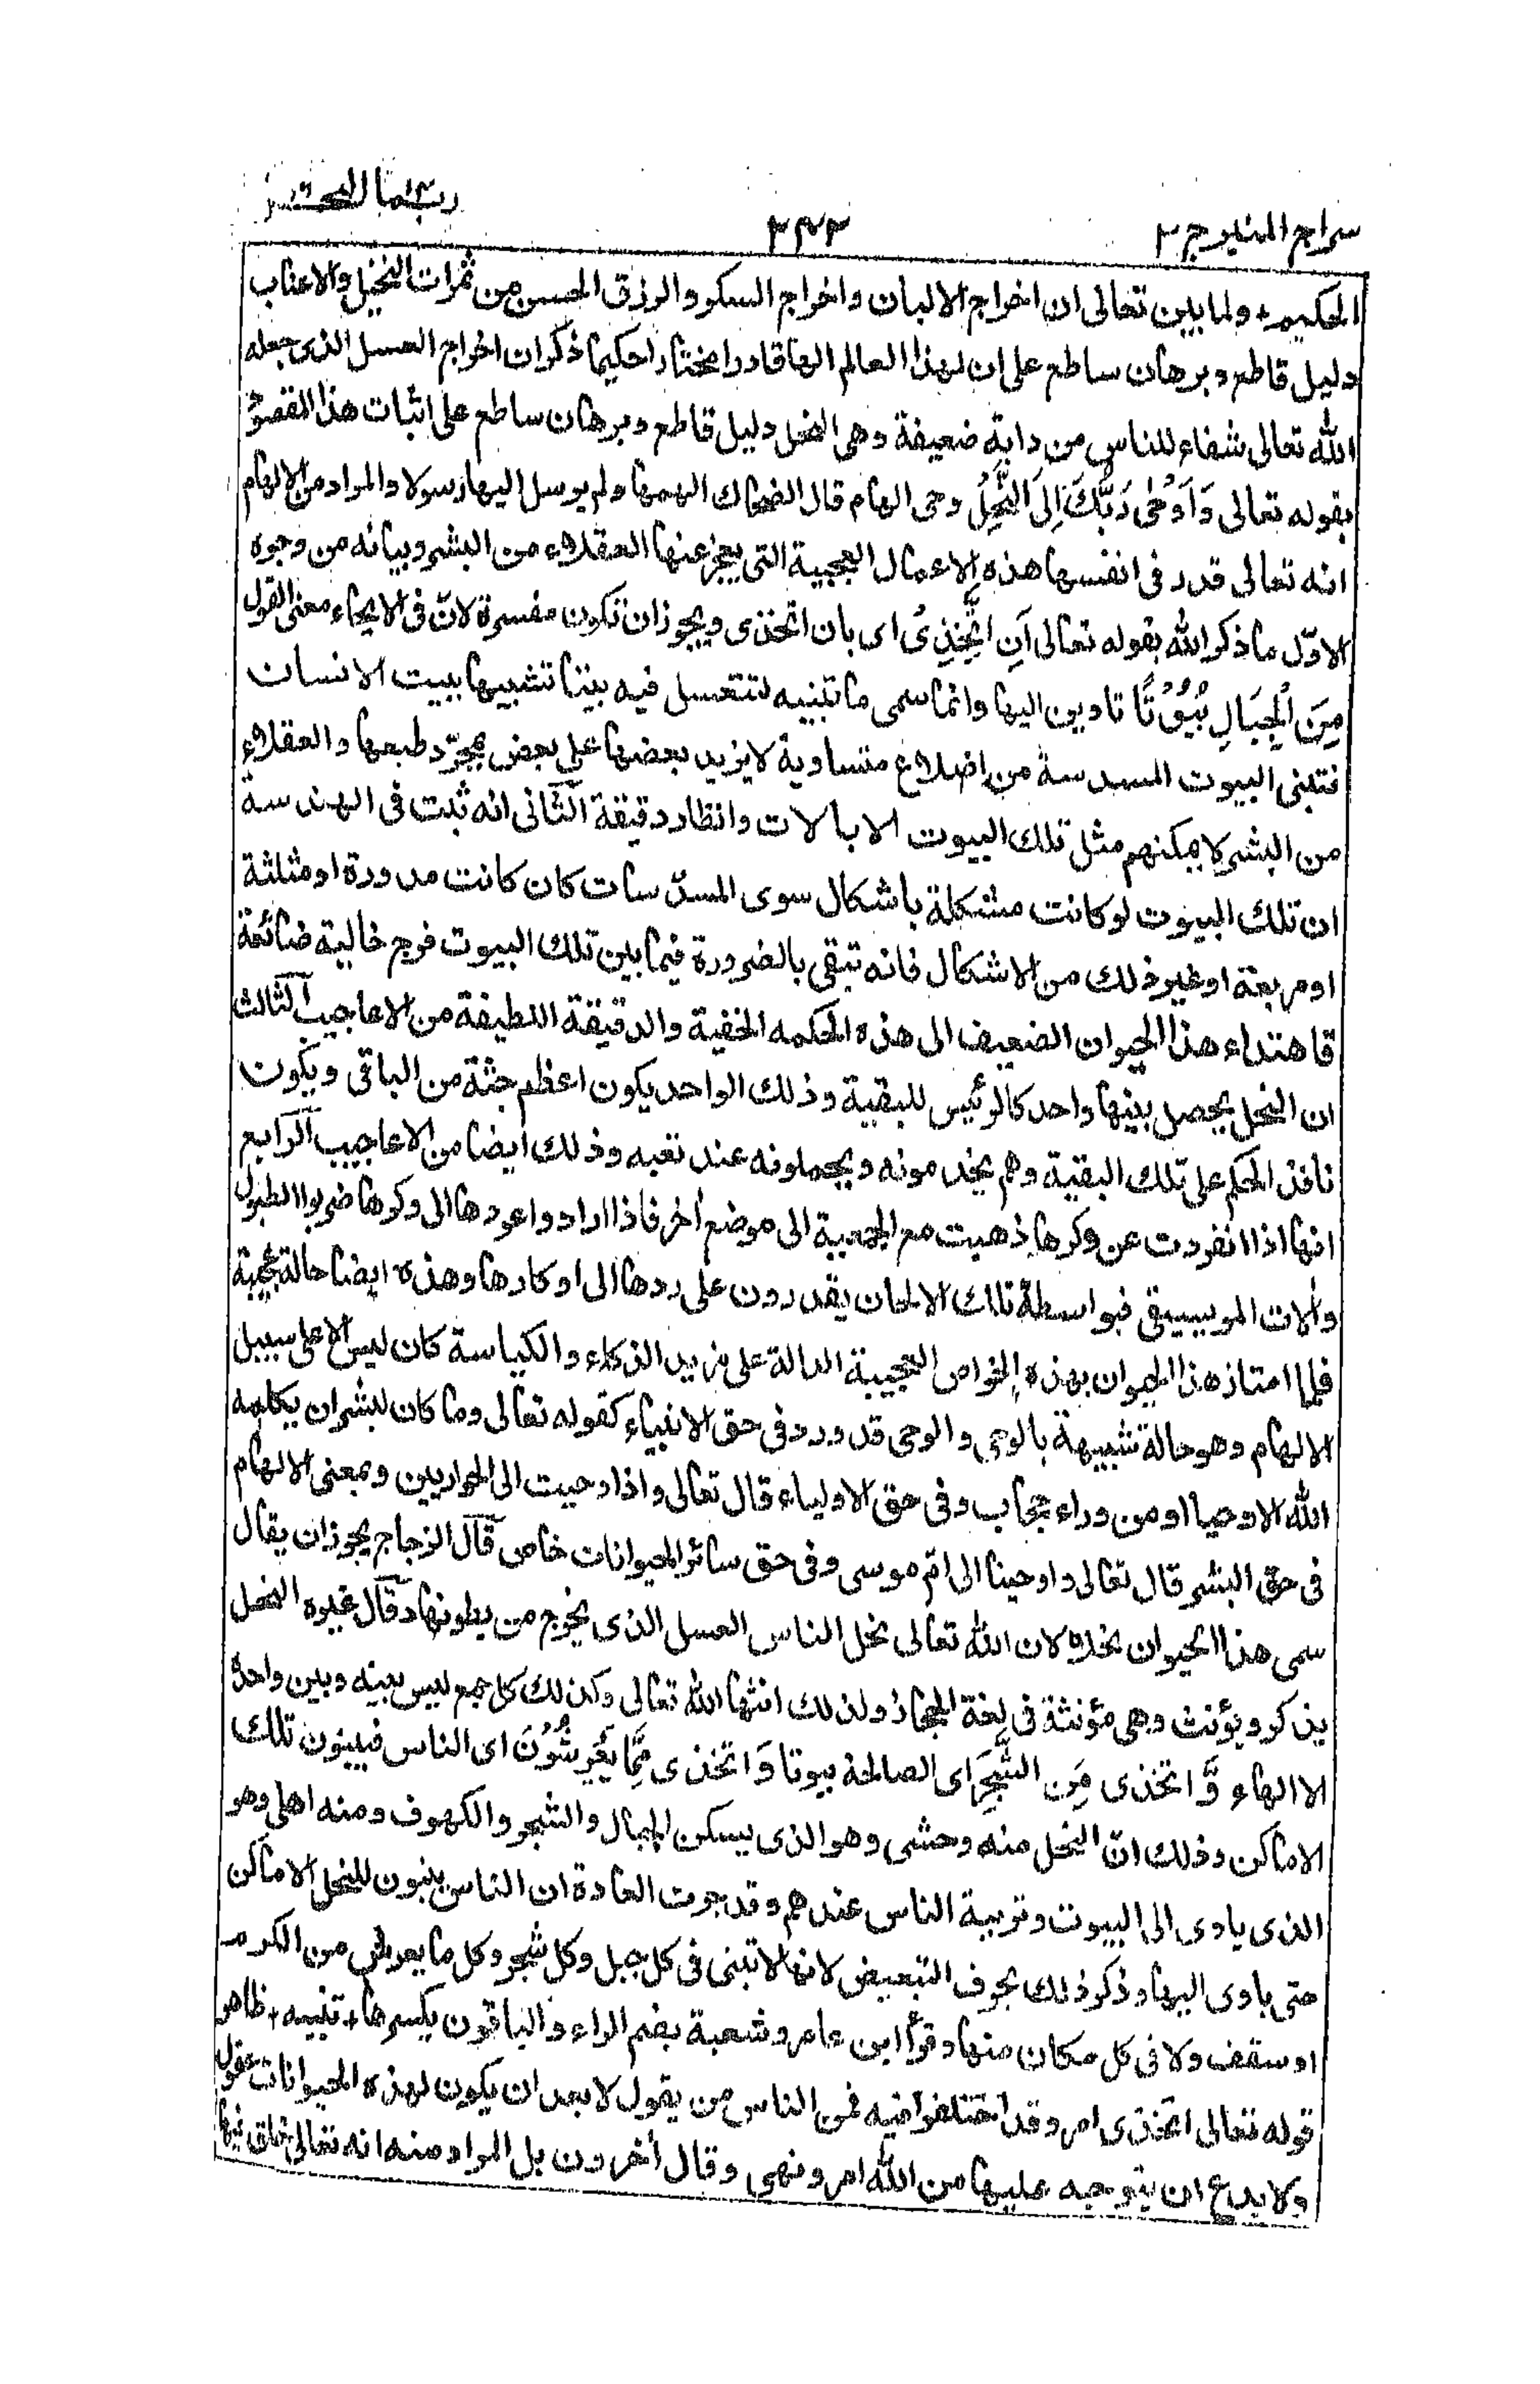 سراج المنير ج ٢
٣٤٢
ربما النحل
الحكيم + ولما بين تعالى ان اخراج الالبان واخراج السكر والرزق الحسن من ثمرات النخيل والاعناب
دليل قاطع وبرهان ساطع على ان لهذا العالم الها قادرا مختارا حكيما ذكر ان اخراج العسل الذى جعله
الله تعالى شفاء للناس من دابة ضعيفة وهى النحل دليل قاطع وبرهان ساطع على اثبات هذا المقصود
بقوله تعالى وَاَوْحٰى رَبُّكَ اِلَى النَّحْلِ وحى الهام قال الضحاك الهمها ولم يرسل اليها رسولا والمراد من الالهام
انه تعالى قدر فى انفسها هذه الاعمال العجيبة التى يعجز عنها العقلاء من البشر وبيانه من وجوه
الاوّل ما ذكر الله بقوله تعالى اَنِ اتَّخِذِىْ اى بان اتخذى ويجوز ان تكون مفسرة لانّ فى الايحاء معنى القول
مِنَ الْجِبَالِ بُيُوْتًا تاوين اليها وانما سمى ما تبنيه لتتعسل فيه بيتا تشبيها ببيت الانسان
فتبنى البيوت المسدسة من اضلاع متساوية لا يزيد بعضها على بعض بمجرّد طبعها والعقلاء
من البشر لا يمكنهم مثل تلك البيوت الا بالات وانظار دقيقة الثانى انه ثبت فى الهندسة
ان تلك البيوت لو كانت مشكلة باشكال سوى المسدّسات كان كانت مدورة او مثلثة
او مربعة او غير ذلك من الاشكال فانه تبقى بالضرورة فيما بين تلك البيوت فرج خالية ضائعة
فاهتداء هذا الحيوان الضعيف الى هذه الحكمه الخفية والدقيقة اللطيفة من الاعاجيب الثالث
ان النحل يحصل بينها واحد كالرئيس للبقية وذلك الواحد يكون اعظم جثة من الباقى ويكون
نافذ الحكم على تلك البقية وهم يخدمونه ويحملونه عند تعبه وذلك ايضا من الاعاجيب الرابع
انها اذا انفردت عن وكرها ذهبت مع الجمعية الى موضع اٰخر فاذا ارادوا عودها الى وكرها ضربوا الطبول
واٰلات الموسيقى فبواسطة تلك الالحان يقدرون على ردها الى اوكارها وهذه ايضا حالة عجيبة
فلما امتاز هذا الحيوان بهذه الخواص العجيبة الدالة على مزيد الذكاء والكياسة كان ليس الا على سبيل
الالهام وهو حالة شبيهة بالوحى والوحى قد ورد فى حق الانبياء كقوله تعالى وما كان لبشر ان يكلمه
الله الا وحيا او من وراء حجاب وفى حق الاولياء قال تعالى واذ اوحيت الى الحواريين وبمعنى الالهام
فى حق البشر قال تعالى واوحينا الى امّ موسى وفى حق سائر الحيوانات خاص قال الزجاج يجوز ان يقال
سمى هذا الحيوان نحلا لان الله تعالى نحل الناس العسل الذى يخرج من بطونها وقال غيره النحل
يذكر ويؤنث وهى مؤنثة فى لغة الحجاز ولذلك انثها الله تعالى وكذلك كل جمع ليس بينه وبين واحده
الا الهاء وَّ اتخذى مِنَ الشَّجَرِ اى الصالحة بيوتا وَ اتخذى مِمَّا يَعْرِشُوْنَ اى الناس فيبنون تلك
الاماكن وذلك انّ النحل منه وحشى وهو الذى يسكن الجبال والشجر والكهوف ومنه اهلى وهو
الذى ياوى الى البيوت وتربية الناس عندهم وقد جرت العادة ان الناس يبنون للنحل الاماكن
حتى ياوى اليها وذكر ذلك بحرف التبعيض لانها لا تبنى فى كل جبل وكل شجر وكل ما يعرش من الكرم
او سقف ولا فى كل مكان منها وقرأ ابن عامر وشعبة بضم الراء والباقون بكسرها + تنبيه + ظاهر
قوله تعالى اتخذى امر وقد اختلفوا فيه فمن الناس من يقول لا بعد ان يكون لهذه الحيوانات عقول
ولا بدع ان يتوجه عليها من الله امر ونهى وقال اٰخرون بل المراد منه انه تعالى خلق فيها